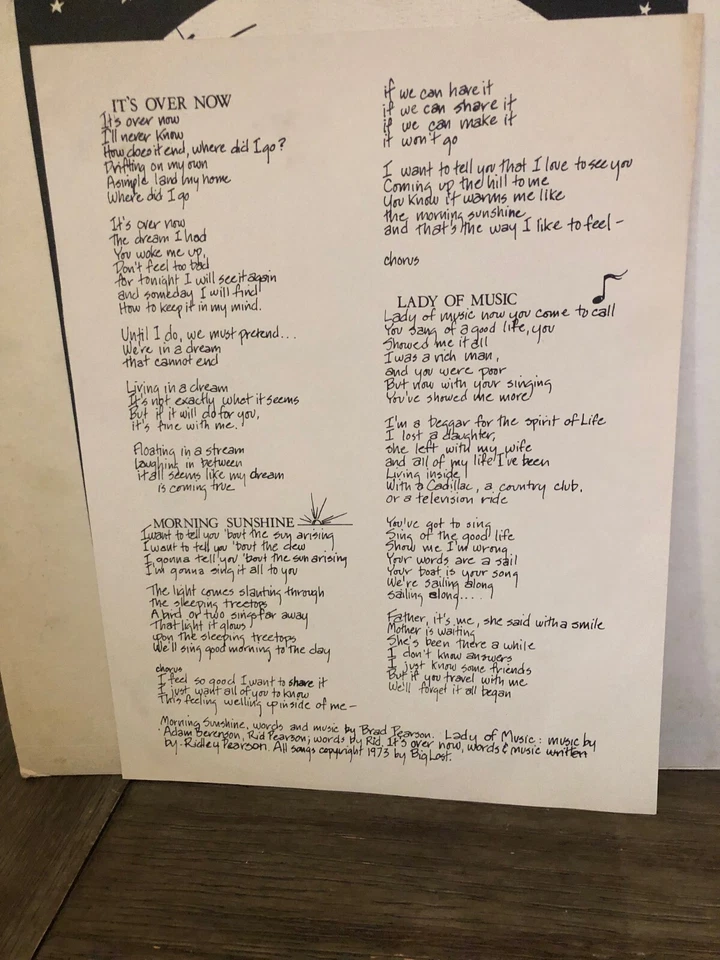 IT'S OVER NOW
It's over now
I'll never know
How does it end, where did I go?
Drifting on my own
A simple land my home
Where did I go
It's over now
The dream I had
You woke me up,
Don't feel too bad
for tonight I will see it again
and someday I will find
How to keep it in my mind.
Until I do, we must pretend...
We're in a dream
that cannot end
Living in a dream
It's not exactly what it seems
But if it will do for you,
it's fine with me.
Floating in a stream
Laughing in between
it all seems like my dream
is coming true
MORNING SUNSHINE
I want to tell you 'bout the sun arising
I want to tell you 'bout the dew
I gonna tell you 'bout the sun arising
I'm gonna sing it all to you
The light comes slanting through
the sleeping treetops
A bird or two sings far away
That light it glows
upon the sleeping treetops
We'll sing good morning to the day
chorus
I feel so good I want to share it
I just want all of you to know
This feeling welling up inside of me-
if we can have it
if we can share it
if we can make it
it won't go
I want to tell you that I love to see you
Coming up the hill to me
You know it warms me like
the morning sunshine
and that's the way I like to feel-
chorus
LADY OF MUSIC
Lady of music now you come to call
You sang of a good life, you
Showed me it all
I was a rich man,
and you were poor
But now with your singing
You've showed me more
I'm a beggar for the spirit of Life
I lost a daughter,
she left with my wife
and all of my life I've been
Living inside
With a Cadillac, a country club,
or a television ride
You've got to sing
Sing of the good life
Show me I'm wrong
Your words are a sail
Your boat is your song
We're sailing along
sailing along....
Father, it's me, she said with a smile
Mother is waiting
She's been there a while
I don't know answers
I just know some friends
But if you travel with me
We'll forget it all began
Morning Sunshine, words and music by Brad Pearson. Lady of Music: music by
Adam Berenson, Rid Pearson; words by Rid. It's over now, words & music written
by Ridley Pearson. All songs copyright 1973 by Big Lost.